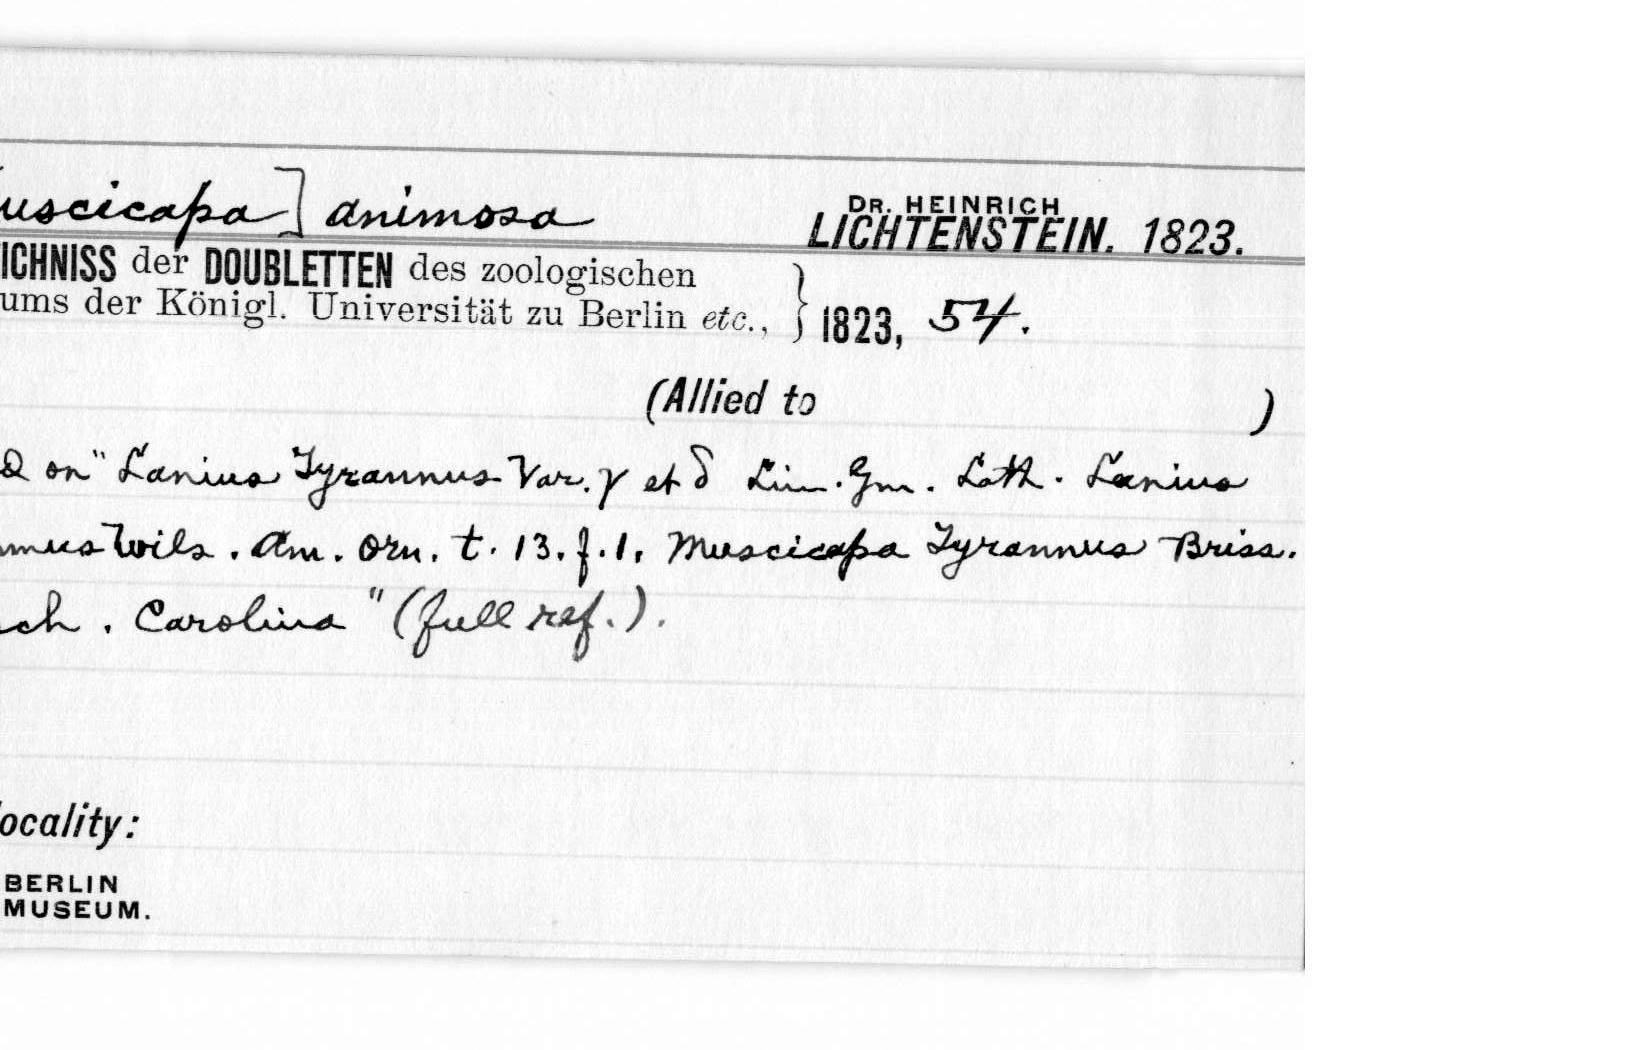 uscicapa] animosa
DR. HEINRICH
LICHTENSTEIN. 1823.
ICHNISS der DOUBLETTEN des zoologischen
ums der Königl. Universität zu Berlin etc., } 1823, 54.
(Allied to )
d on "Lanius Tyrannus Var. γ et δ Lin. Gm. Lath. Lanius
nnus Wils. Am. Orn. t. 13. f. 1. Muscicapa Tyrannus Briss.
ch. Carolina" (full ref.).
ocality:
BERLIN
MUSEUM.